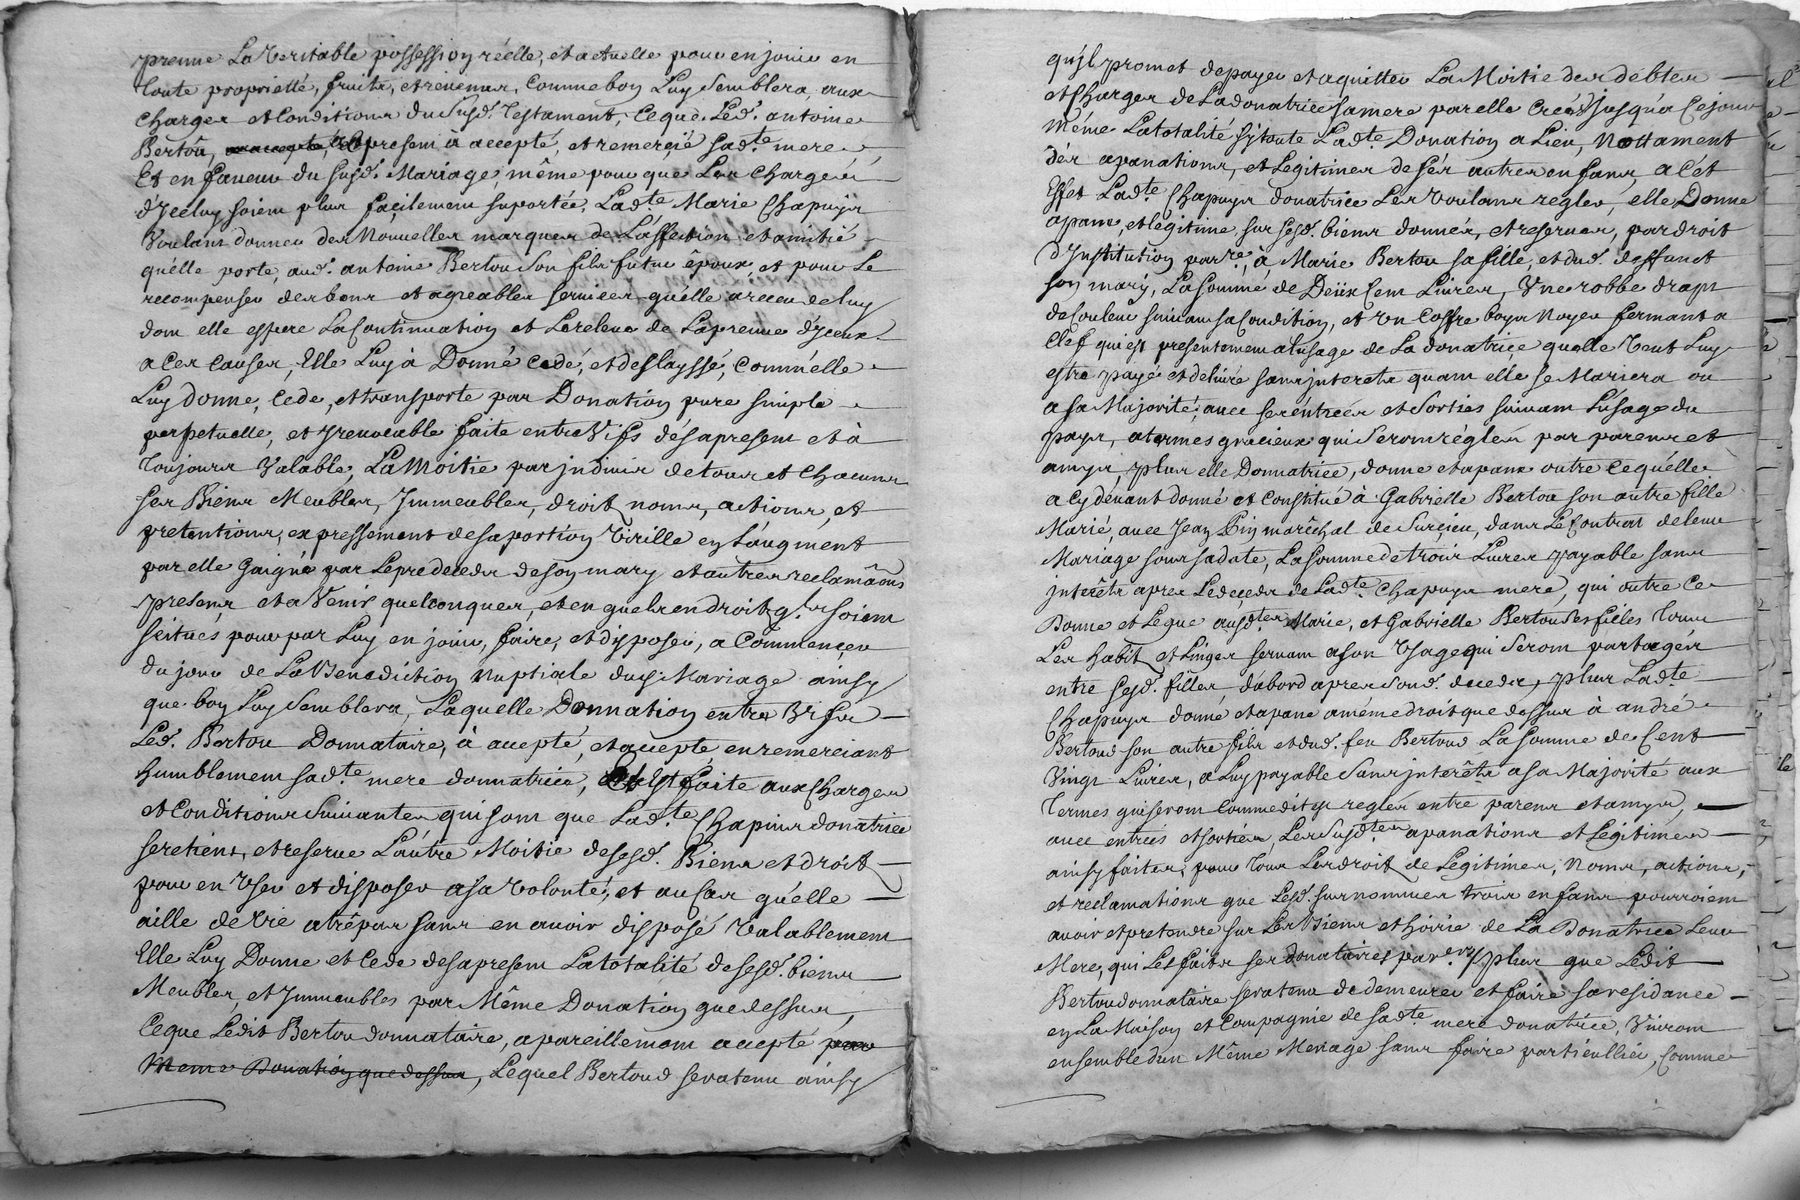 prenne La veritable possession réelle, et actuelle pour en jouir en
toute proprietté, fruits, et revenus, Comme bon Luy Semblera, aux
charges et Conditions du Susd. Testament, Ceque Led. antoine
Bertou, present à accepté, et remerçié sad.te mere,
Et en faveur du susd. Mariage, même pour que Les Charges
d'Jceluy soient plus façilement suportés, Lad.te Marie Chapuys
Voulant donner des Nouvelles marques de L'affection et amitié
qu'elle porte, aud. antoine Bertou Son fils futur epoux, et pour Le
recompenser des bons et agreables services qu'elle a receu de luy
dont elle espere La Continuation et Lereleve de Lapreuve d'Jceux
a Ces Causes, Elle Luy à Donné Cedé, et deslayssé, Comm'elle
Luy donne, Cede, et transporte par Donation pure simple
perpetuelle, et Jrrevocable faite entre Vifs désapresent et à
toujours Valable, La Moitié par jndivis de tous et Chacuns
ses Biens Meubles, Jmmeubles, droit noms, actions, et
pretentions, expressement de sa portion Virille en L'augment
par elle Gaigné par Le predeceds de son mary et autres reclamãons
presens et a Venir quelconques, et en quels endroits q.ls soient
scitués pour par Luy en jouir, faire, et disposer, a Commençer
du jour de La Benediction Nuptiale dud. Mariage ainsy
que bon Luy Semblera, Laquelle Donnation entre Vifs
Led. Bertou Donnataire, à accepté, et accepte, en remerciant
humblement sad.te mere donnatrice, Et Est faite aux Charges
et Conditions Suivantes qui sont que Lad.te Chapuis donatrice
se retient, et reserve L'autre Moitié de sesd. Biens et droit
pour en Vser et disposer a sa Volonté, et au Cas qu'elle
aille de Vie a trêpas sans en avoir disposé Valablement
Elle Luy Donne et Cede desapresent La totalité de sesd. biens
Meubles, et Jmmeubles par Même Donation que dessus,
Ceque Ledit Bertou donnataire, a pareillement accepté par
meme Donation que dessus, Lequel Bertoud sera tenu ainsy
qu'jl promet de payer et aquitter La Moitié des débtes
et Charges de La donatrice sa mere par elle Creés jusqu'a Cejour
même La totalité sy toute Lad.te Donation a Lieu, Nottament
dés apanations, et Legitimes de sés autres enfans, a Cét
Effet Lad.te Chapuys donatrice Les Voulant regler, elle Donne
apane, et legitime, sur sesd. biens donnés, et reservés, par droit
d'Jnstitution par.re, à Marie Bertou sa fille, et dud. deffunct
son mary, La somme de Deüx Cent Livres, Vne robbe drap
de Couleur suivant sa Condition, et Vn Coffre boys Noyer fermant a
Clef qui est presentement a l'usage de La donatrice quelle Veut Luy
estre payé et delivré sans jnterets quant elle se Mariera ou
a sa Majorité, avec ses éntrées et Sorties suivant L'usage du
pays, a termes gracieux qui Seront réglés par parens et
amys, plus elle Donnatrice, donne et apane outre Cequ'elle
a Cy dévant donné et Constitué à Gabrielle Bertou son autre fille
Marié, avec Jean Pin marêchal de Surçieu, dans Le Contrat de leur
Mariage sous sa date, La somme de trois Livres payable sans
jnterêts apres Le deçeds de Lad.te Chapuys mere, qui outre Ce
Donne et Legue ausd.tes Marie, et Gabrielle Bertou Ses filles Tous
Les habit et Linges servant a son Vsage qui Seront partagés
entre sesd. filles dabord apres Sond. deceds, plus Lad.te
Chapuys donne et apane a même droit que dessus à andré
Bertoud son autre fils et dud. feu Bertoud La somme de Cent
Vingt Livres, a Luy payable Sans jnterêts a sa Majorité aux
Termes qui seront Comme dit est reglés entre parens et amys,
avec entrées et sorties, Les susd.tes apanations et Légitimes
ainsy faites, pour Tous Les droit de Legitimes, Noms, actions,
et reclamations que Lesd. surnommés trois enfans pourroient
avoir et pretendre sur Les Biens et hoirie de La Donatrice Leur
Mere, qui Les faits ses donataires par.ers, plus que Ledit
Bertou donnataire sera tenu de demeurer et faire sa residance
en La Maison et Compagnie de sad.te mere donatrice, Vivront
ensemble d'un Même Menage sans faire particullier, Comme